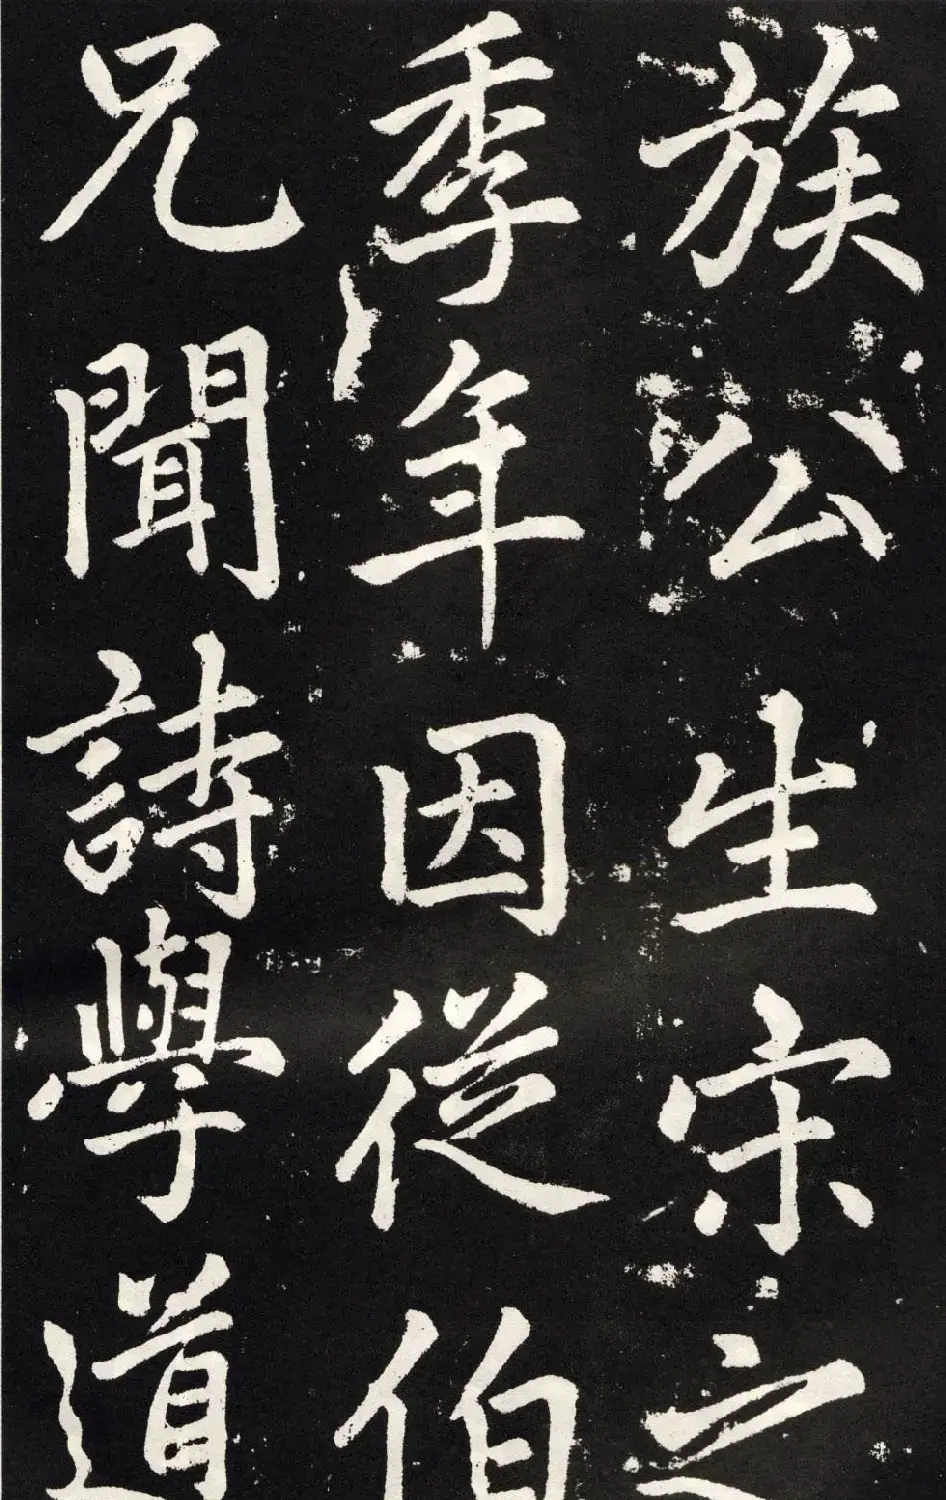 族公生宋之
季年因從伯
兄聞詩學道